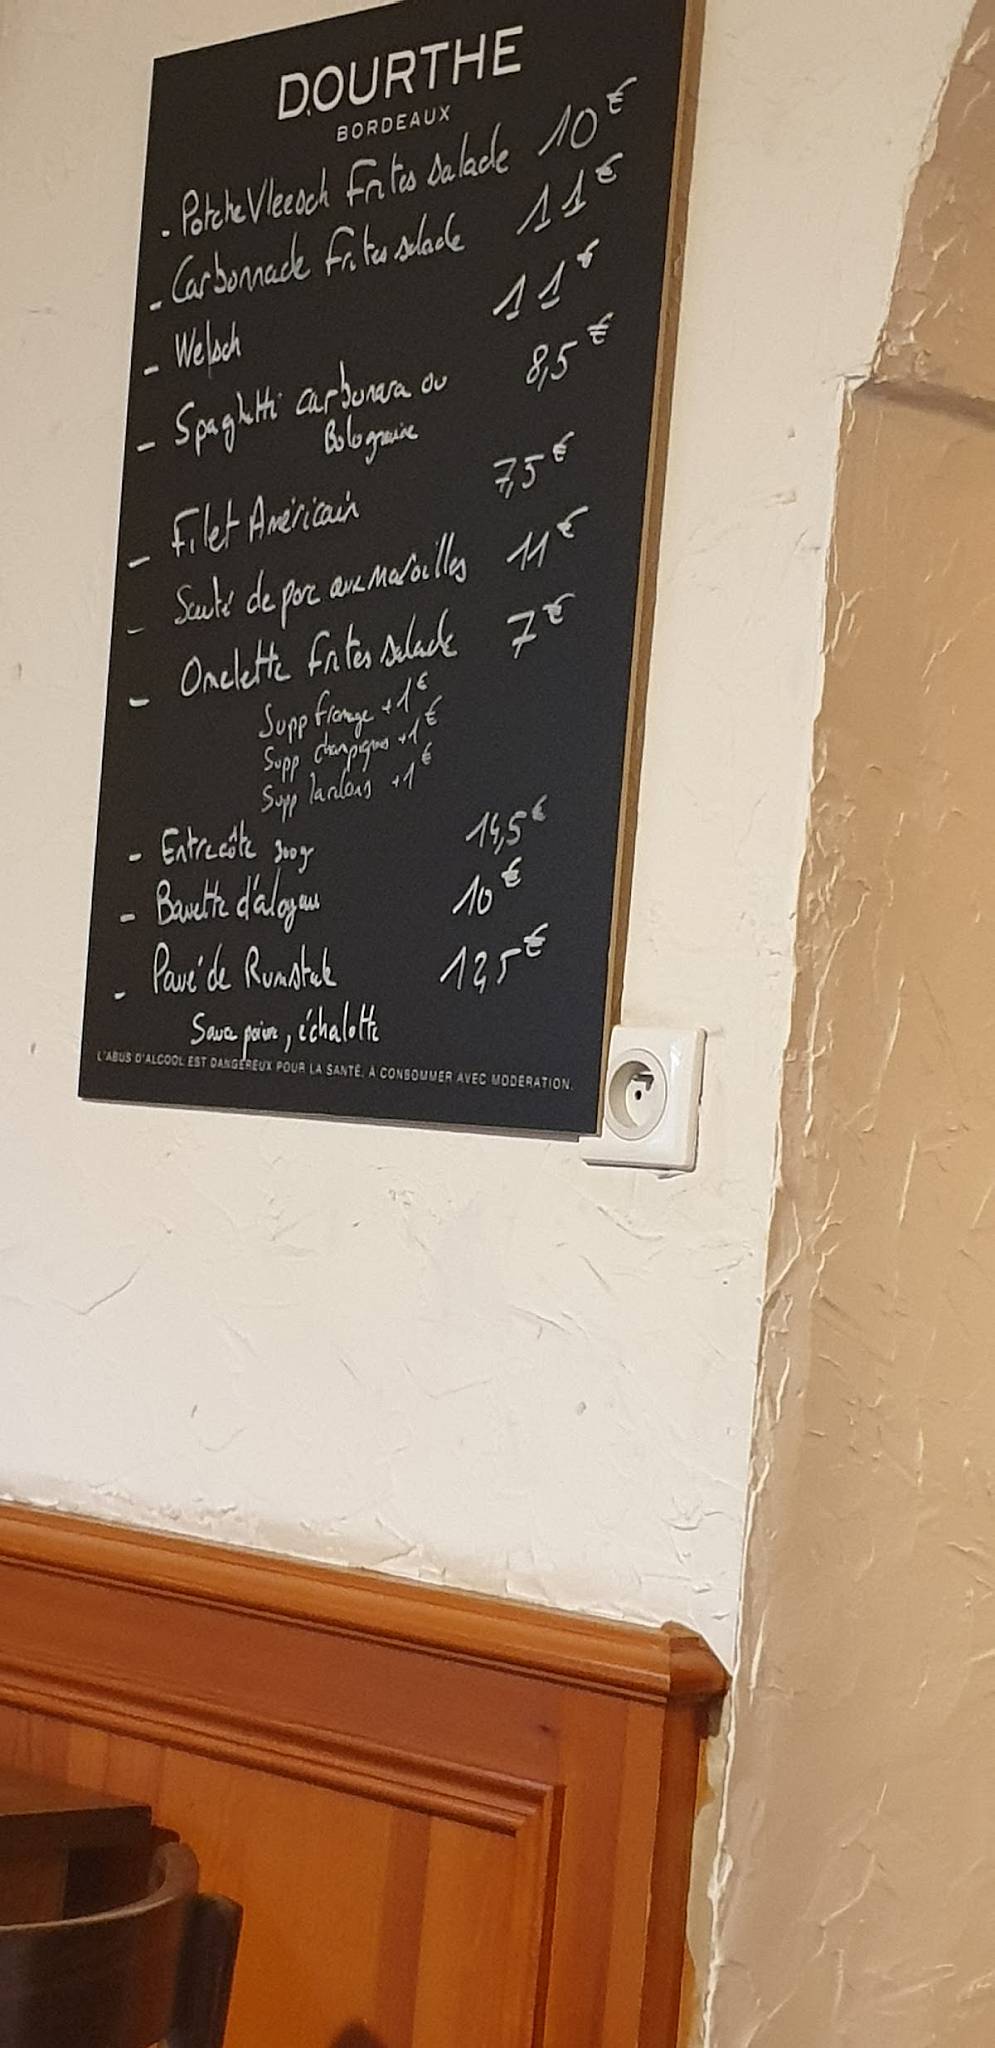 DOURTHE
BORDEAUX
- PotcheVleesch Frites salade 10€
- Carbonnade Frites salade 11€
- Welsch 11€
- Spaghetti carbonara ou 8,5€
Bolognaise
- Filet Américain 7,5€
- Sauté de porc aux Maroilles 11€
- Omelette Frites salade 7€
Supp fromage +1€
Supp champignons +1€
Supp lardons +1€
- Entrecôte 300g 14,5€
- Bavette d'aloyau 10€
- Pavé de Rumsteak 12,5€
Sauce poivre, échalotte
L'ABUS D'ALCOOL EST DANGEREUX POUR LA SANTÉ. À CONSOMMER AVEC MODÉRATION.